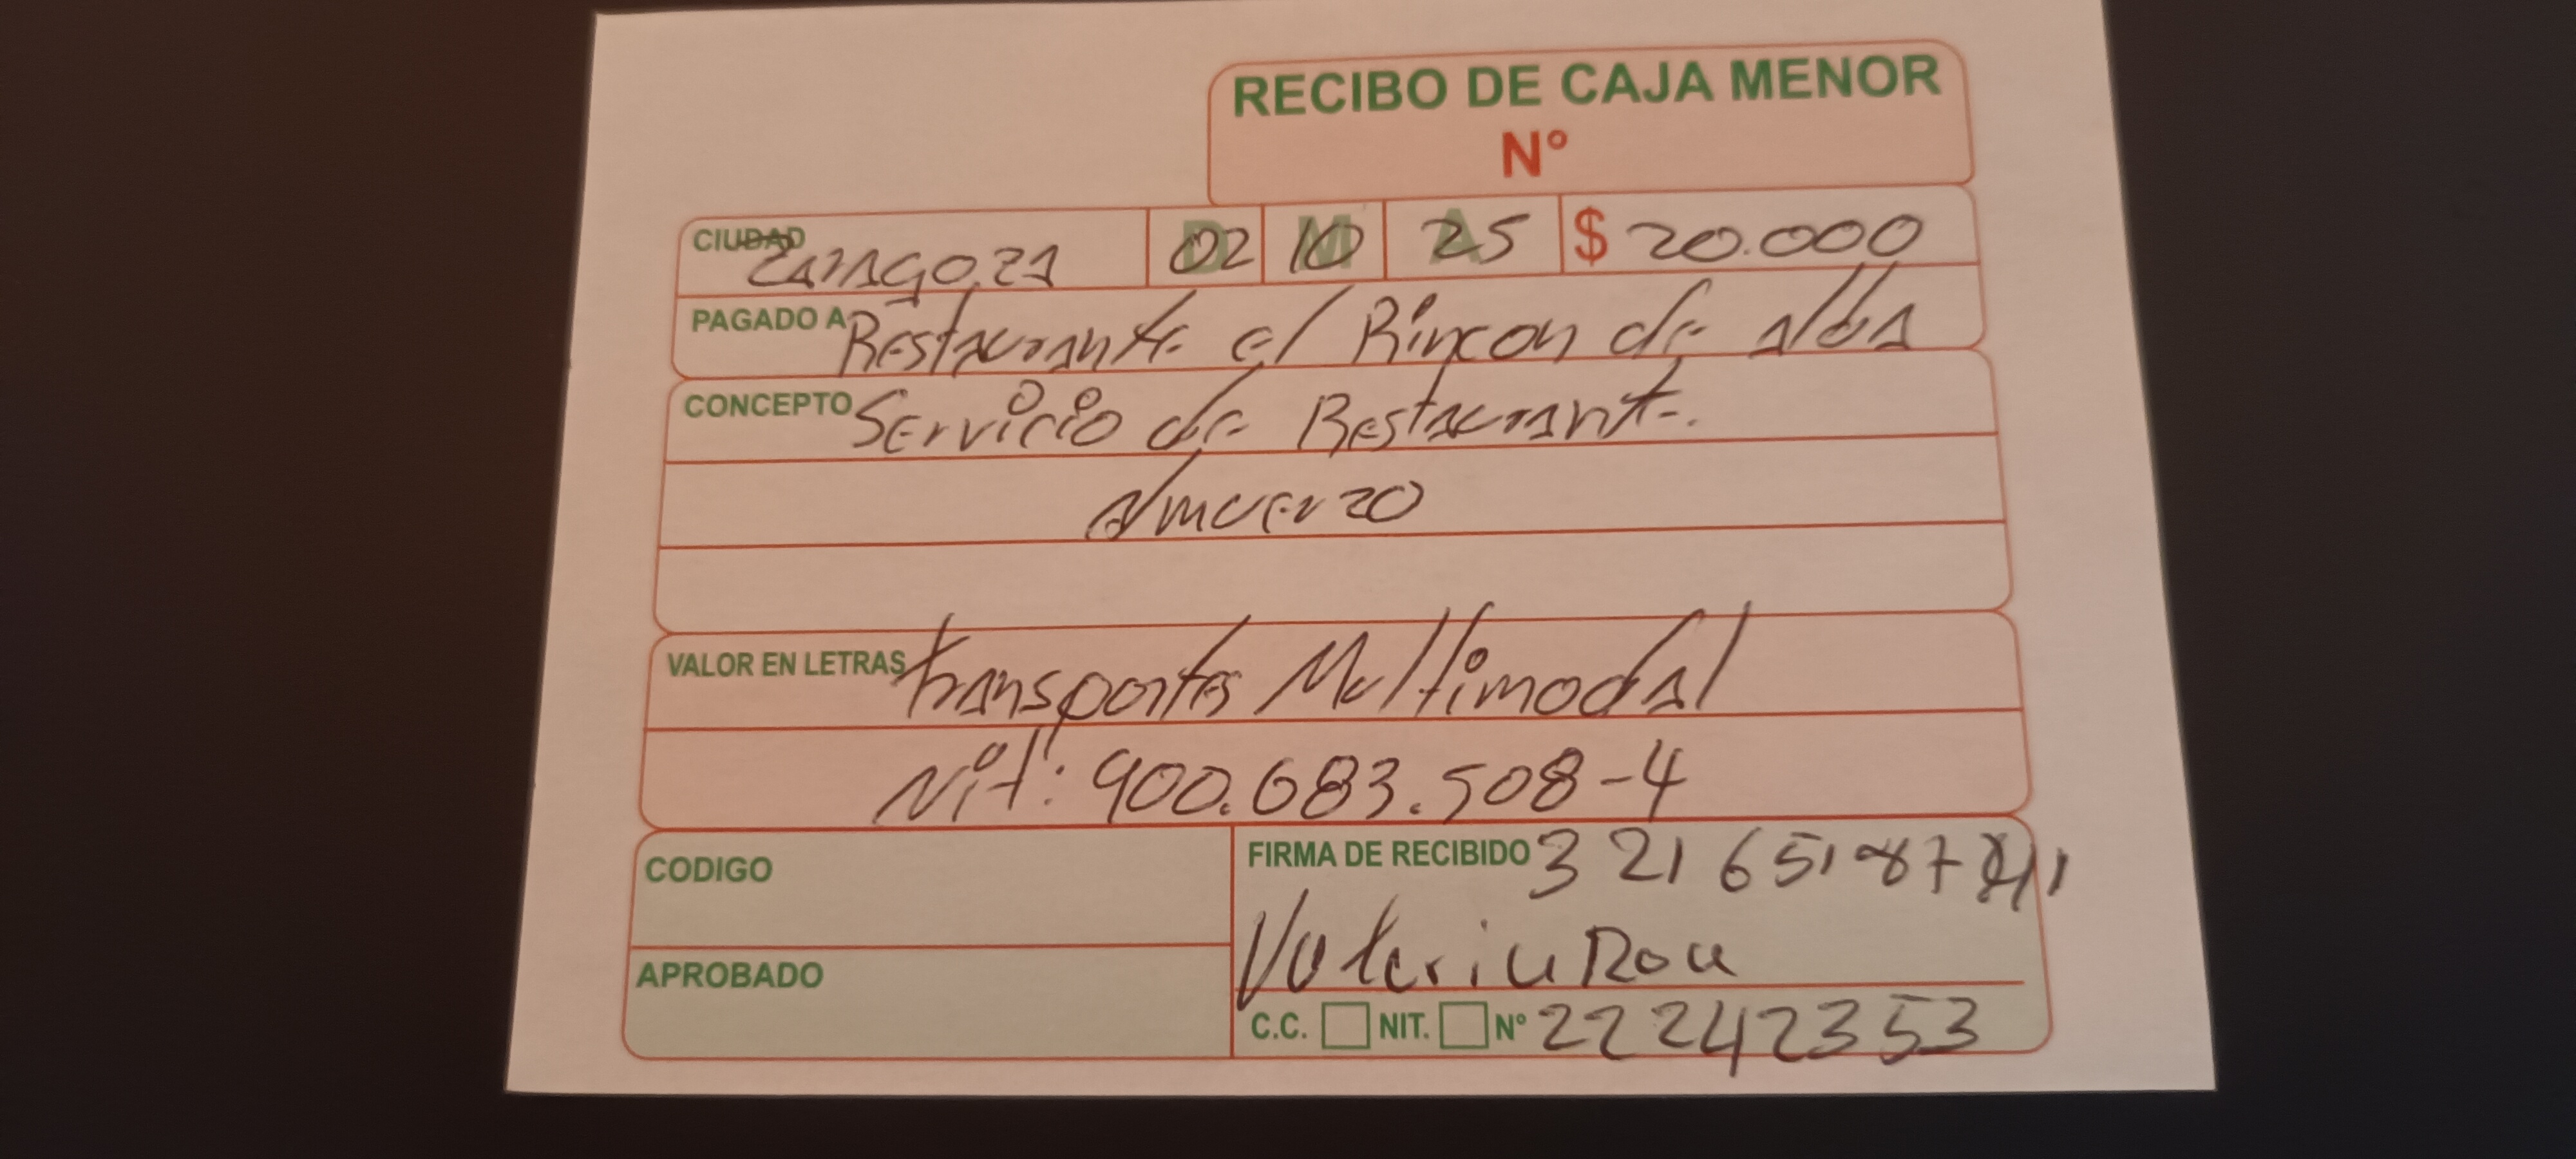 RECIBO DE CAJA MENOR
N°
CIUDAD Zaragoza D 02 M 10 A 25 $ 20.000
PAGADO A Restaurante el Rincon de alba
CONCEPTO Servicio de Restaurante.
almuerzo
VALOR EN LETRAS transportes Multimodal
Nit: 900.683.508-4
CODIGO
FIRMA DE RECIBIDO
Valeria
APROBADO
C.C. NIT. N° 22242353